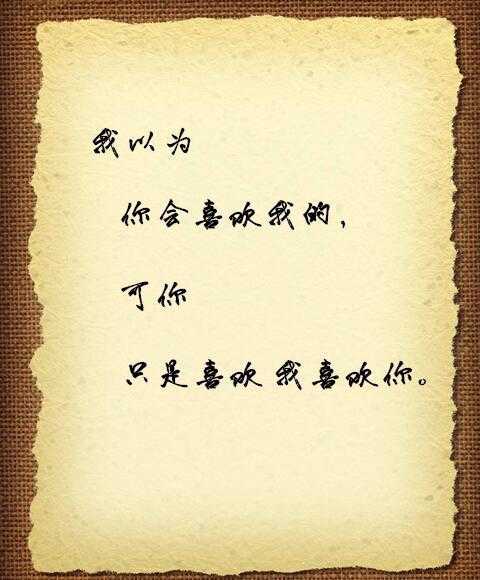 我以为
你会喜欢我的，
可你
只是喜欢我喜欢你。